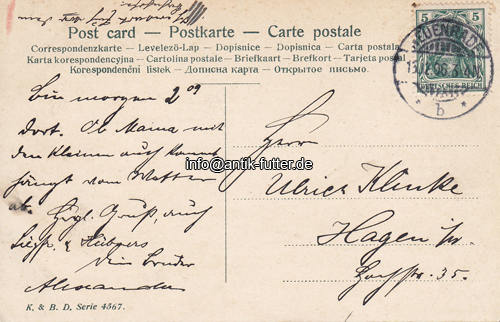 Post card — Postkarte — Carte postale
Correspondenzkarte — Levelező-Lap — Dopisnice — Dopisnica — Carta postala
Karta korespondencyjna — Cartolina postale — Briefkaart — Brefkort — Tarjeta postal
Korespondenční lístek — Дописна карта — Открытое письмо.
5 5
DEUTSCHES REICH
b
Bin morgen 2 09
dort. Ob Mama mit
den Kleinen auch kommt
hängt vom Wetter
ab. Herzl. Gruß, auch
Dein Bruder
Alexander
Herrn
info@antik-futter.de
Ulrich Klinke
Hagen i/w
35.
K. & B. D. Serie 4567.